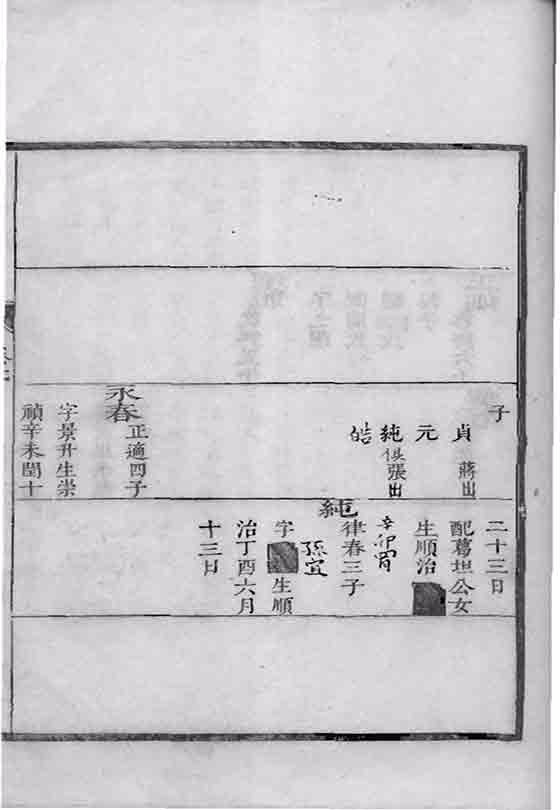 子
貞 蔣出
元
純俱張出
皓
永春
正適四子
字景升生崇
禎辛未閏十
二十三日
配葛坦公女
生順治
辛卯
純
律春三子
孫宜
字 生順
治丁酉六月
十三日